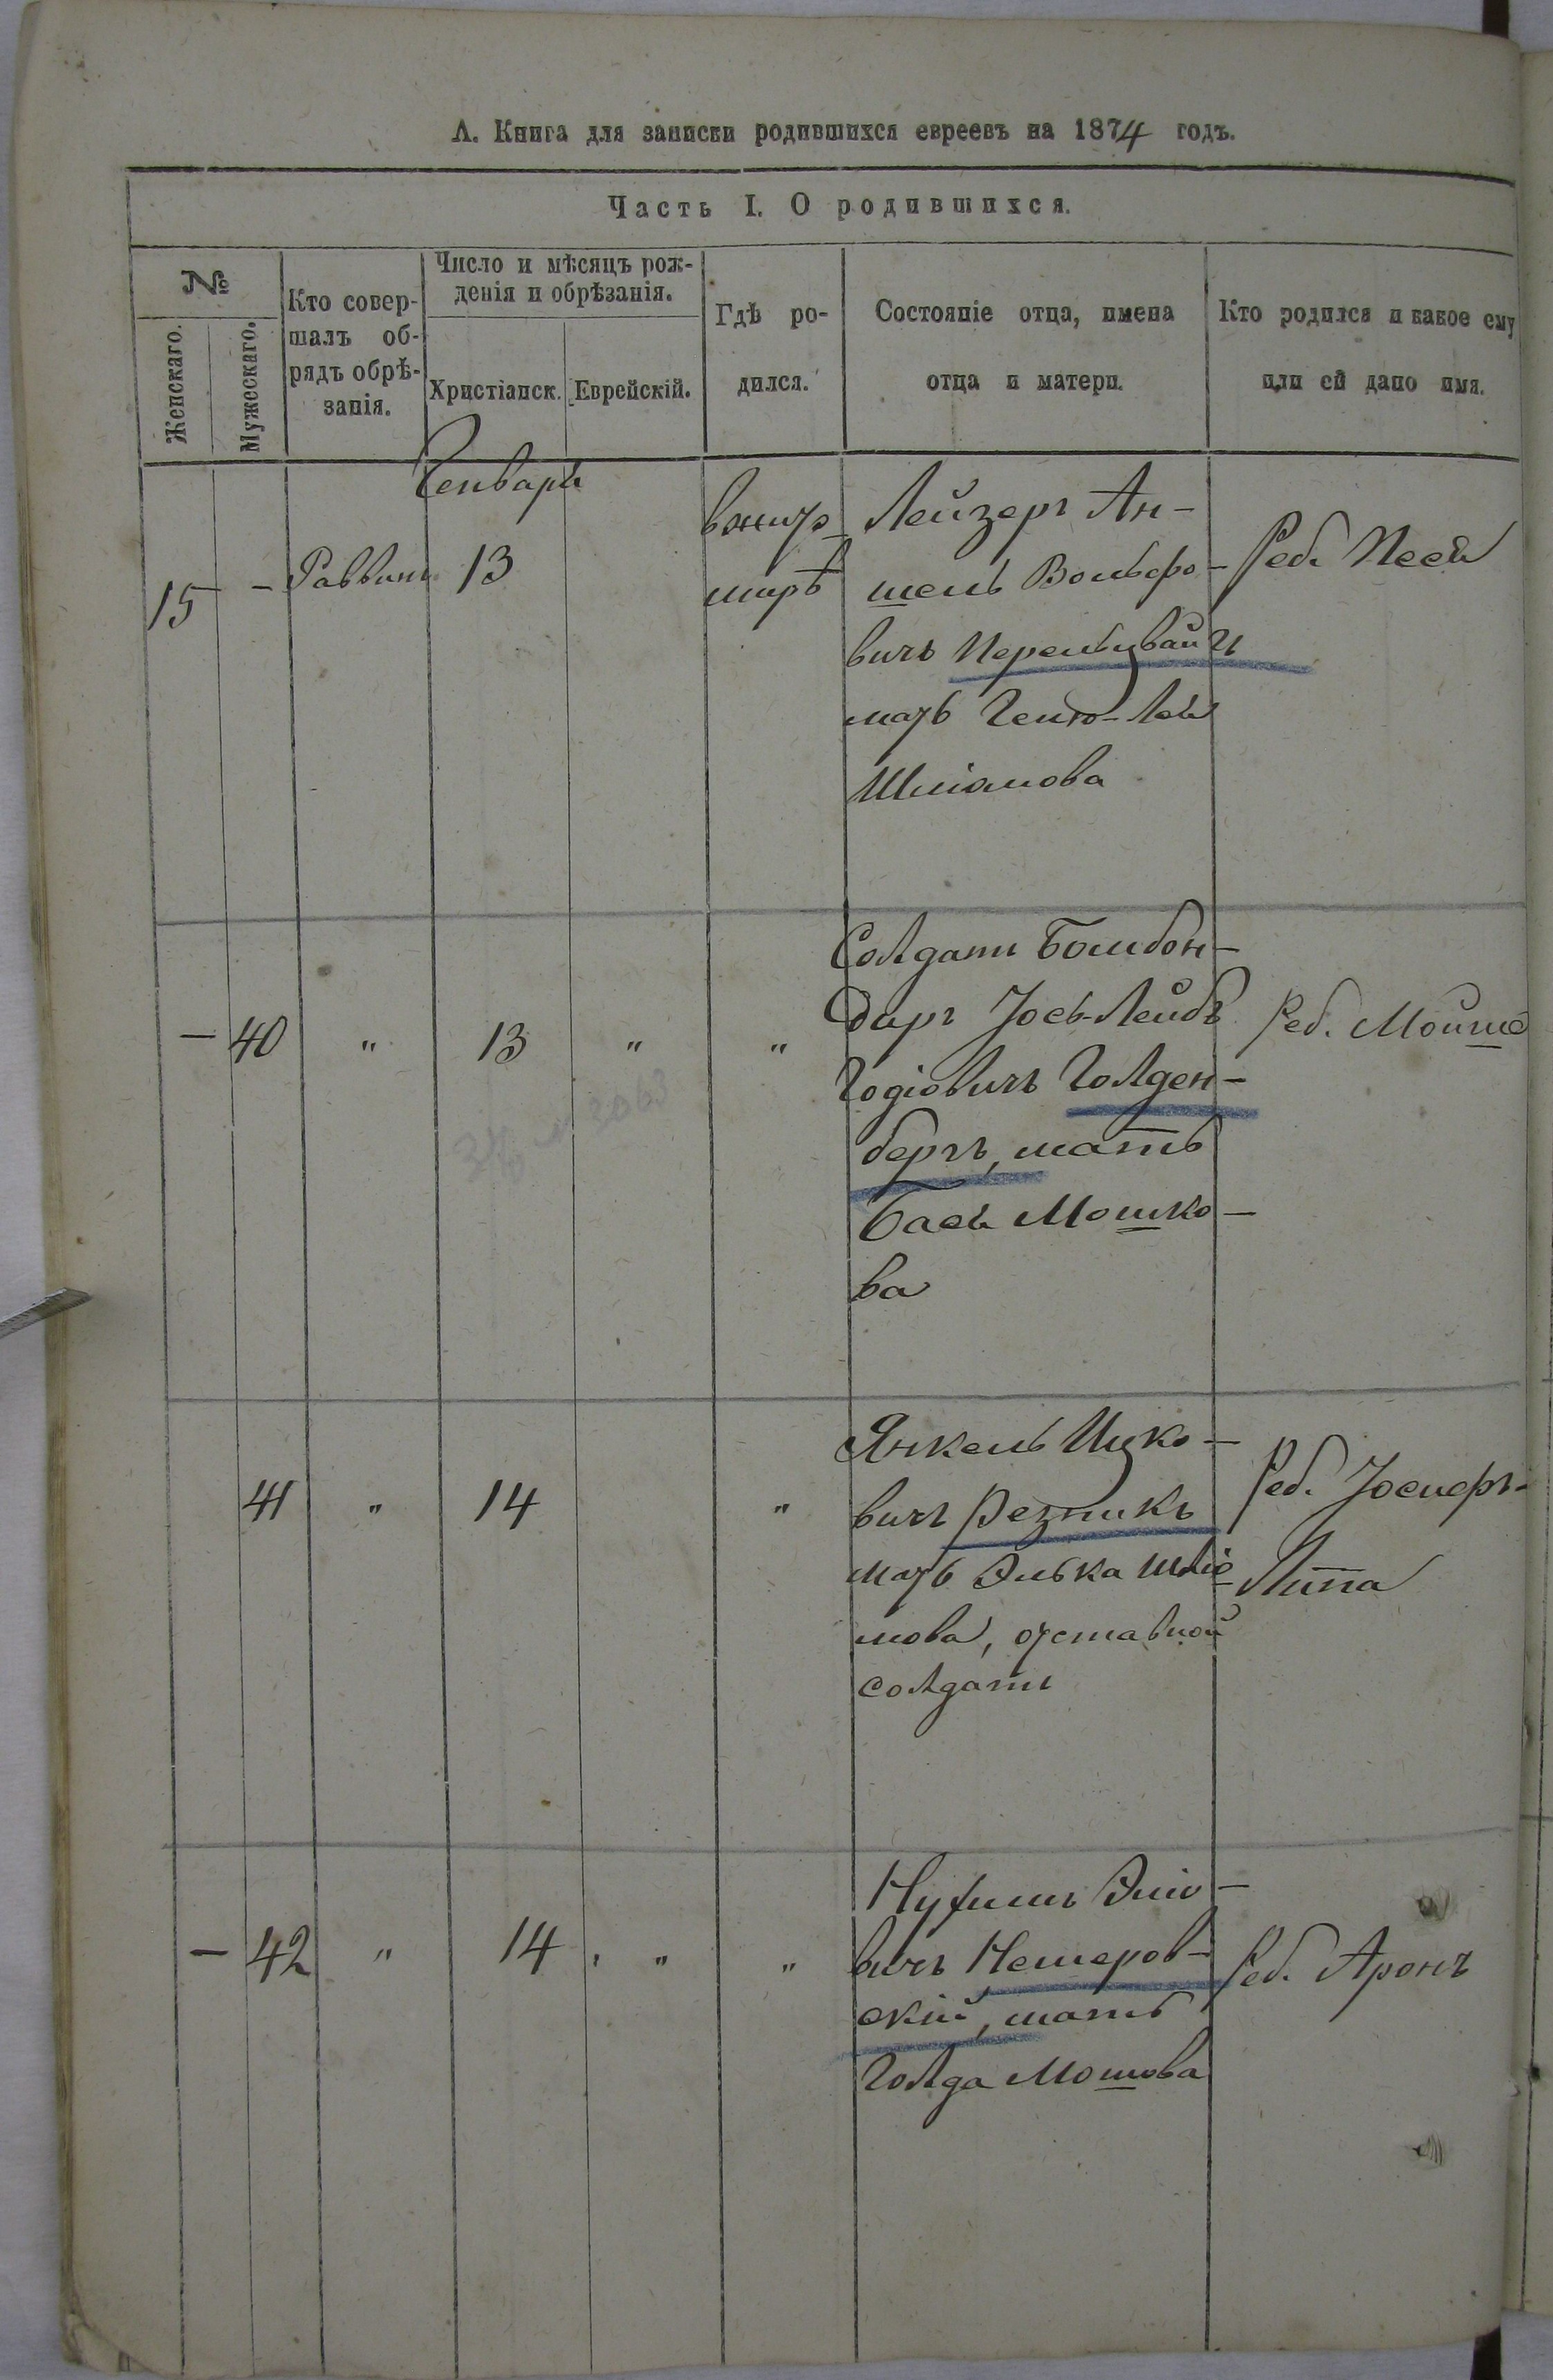 А. Книга для записки родившихся евреевъ на 1874 годъ.
Часть I. О родившихся.
№
Женскаго.
Мужескаго.
Кто совер-
шалъ об-
рядъ обрѣ-
занія.
Число и мѣсяцъ рож-
денія и обрѣзанія.
Христіанск.
Еврейскій.
Гдѣ ро-
дился.
Состояніе отца, имена
отца и матери.
Кто родился и какое ему
или ей дано имя.
Генваря
15 - Раввинъ 13
вжито
мирѣ
Лейзеръ Ан-
шель Вольфо-
вичъ Перельцвайгъ
мать Геню-Лея
Шліомова
Реб. Песя
- 40 " 13 " "
Солдатъ Бомбон-
диръ Іось-Лейбъ
Годіовичъ Голден-
бергъ, мать
Бася Мошко-
ва
Реб. Мойше
41 " 14 "
Янкель Ицко-
вичъ Резникъ
мать Элька Шліо-
мова, отставной
солдатъ
Реб. Іосифъ-
Липа
- 42 " 14 " "
Нухимъ Эліо-
вичъ Немеров-
скій, мать
Голда Мошова
Реб. Аронъ